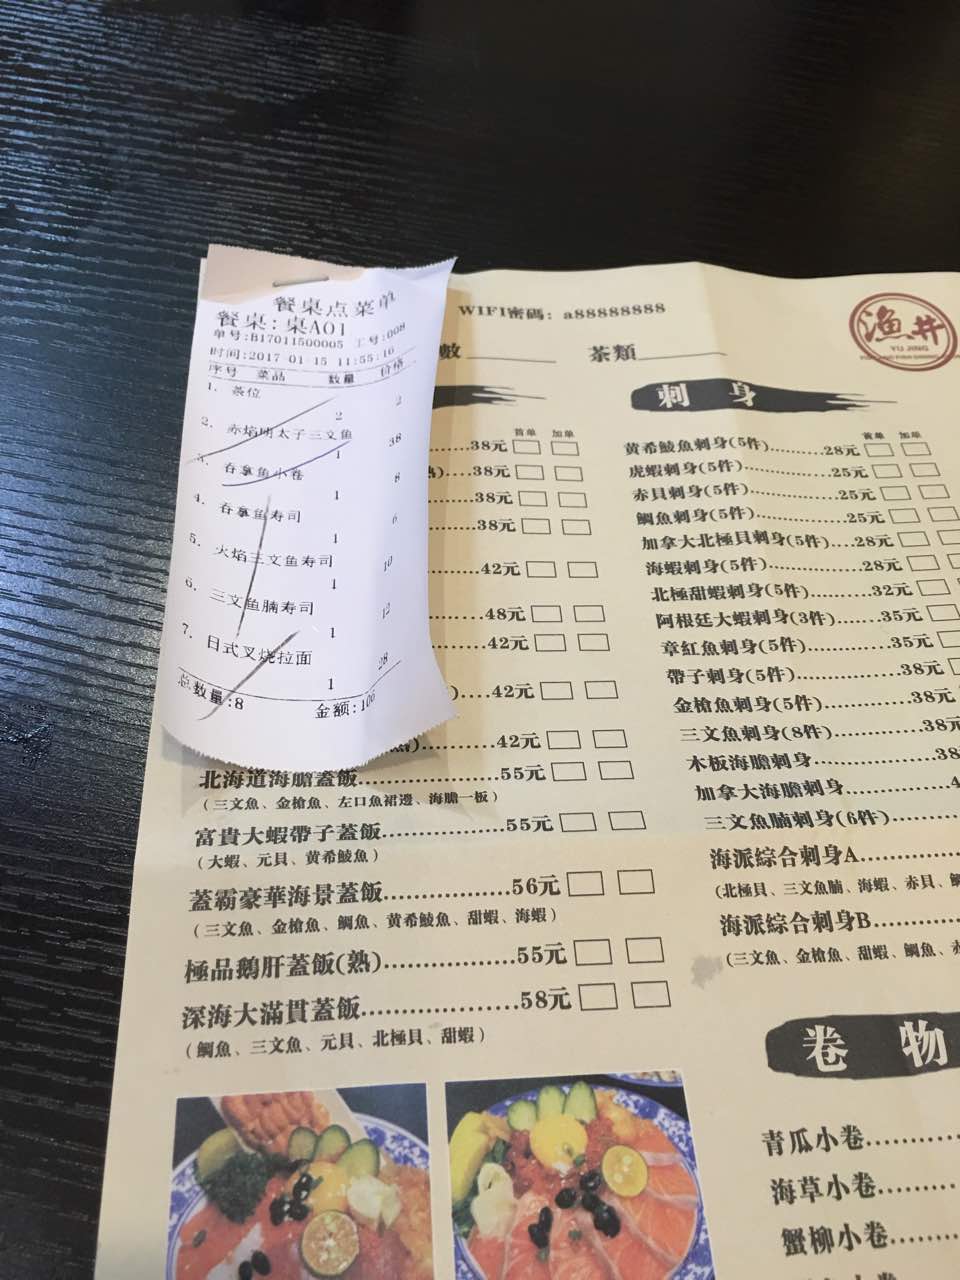 餐桌点菜单
餐桌:桌A01
单号:B17011500005 工号:008
时间:2017-01-15 11:55:16
序号 菜品 数量 价格
1. 茶位
2 2
2. 赤焰明太子三文鱼
1 38
3. 吞拿鱼小卷
1 8
4. 吞拿鱼寿司
1 6
5. 火焰三文鱼寿司
1 10
6. 三文鱼腩寿司
1 12
7. 日式叉烧拉面
1 28
总数量:8 金额:106
WIFI密碼: a88888888
數 茶類
漁井
YU JING
首单 加单
38元
熟)....38元
38元
38元
42元
48元
42元
)....42元
)..........42元
北海道海膽蓋飯....................55元
(三文魚、金槍魚、左口魚裙邊、海膽一板)
富貴大蝦帶子蓋飯.................55元
(大蝦、元貝、黄希鯪魚)
蓋霸豪華海景蓋飯...............56元
(三文魚、金槍魚、鯛魚、黄希鯪魚、甜蝦、海蝦)
極品鵝肝蓋飯(熟)................55元
深海大滿貫蓋飯....................58元
(鯛魚、三文魚、元貝、北極貝、甜蝦)
刺 身
首单 加单
黄希鯪魚刺身(5件).........28元
虎蝦刺身(5件)...............25元
赤貝刺身(5件)...............25元
鯛魚刺身(5件)...............25元
加拿大北極貝刺身(5件)....28元
海蝦刺身(5件)...............28元
北極甜蝦刺身(5件)..........32元
阿根廷大蝦刺身(3件).......35元
章紅魚刺身(5件).............35元
帶子刺身(5件)................38元
金槍魚刺身(5件)..............38元
三文魚刺身(8件)..............38元
木板海膽刺身..................38
加拿大海膽刺身...............4
三文魚腩刺身(6件)..........
海派綜合刺身A...............
(北極貝、三文魚腩、海蝦、赤貝、鯛
海派綜合刺身B.............
(三文魚、金槍魚、甜蝦、鯛魚、赤
卷 物
青瓜小卷...........
海草小卷..........
蟹柳小卷.........